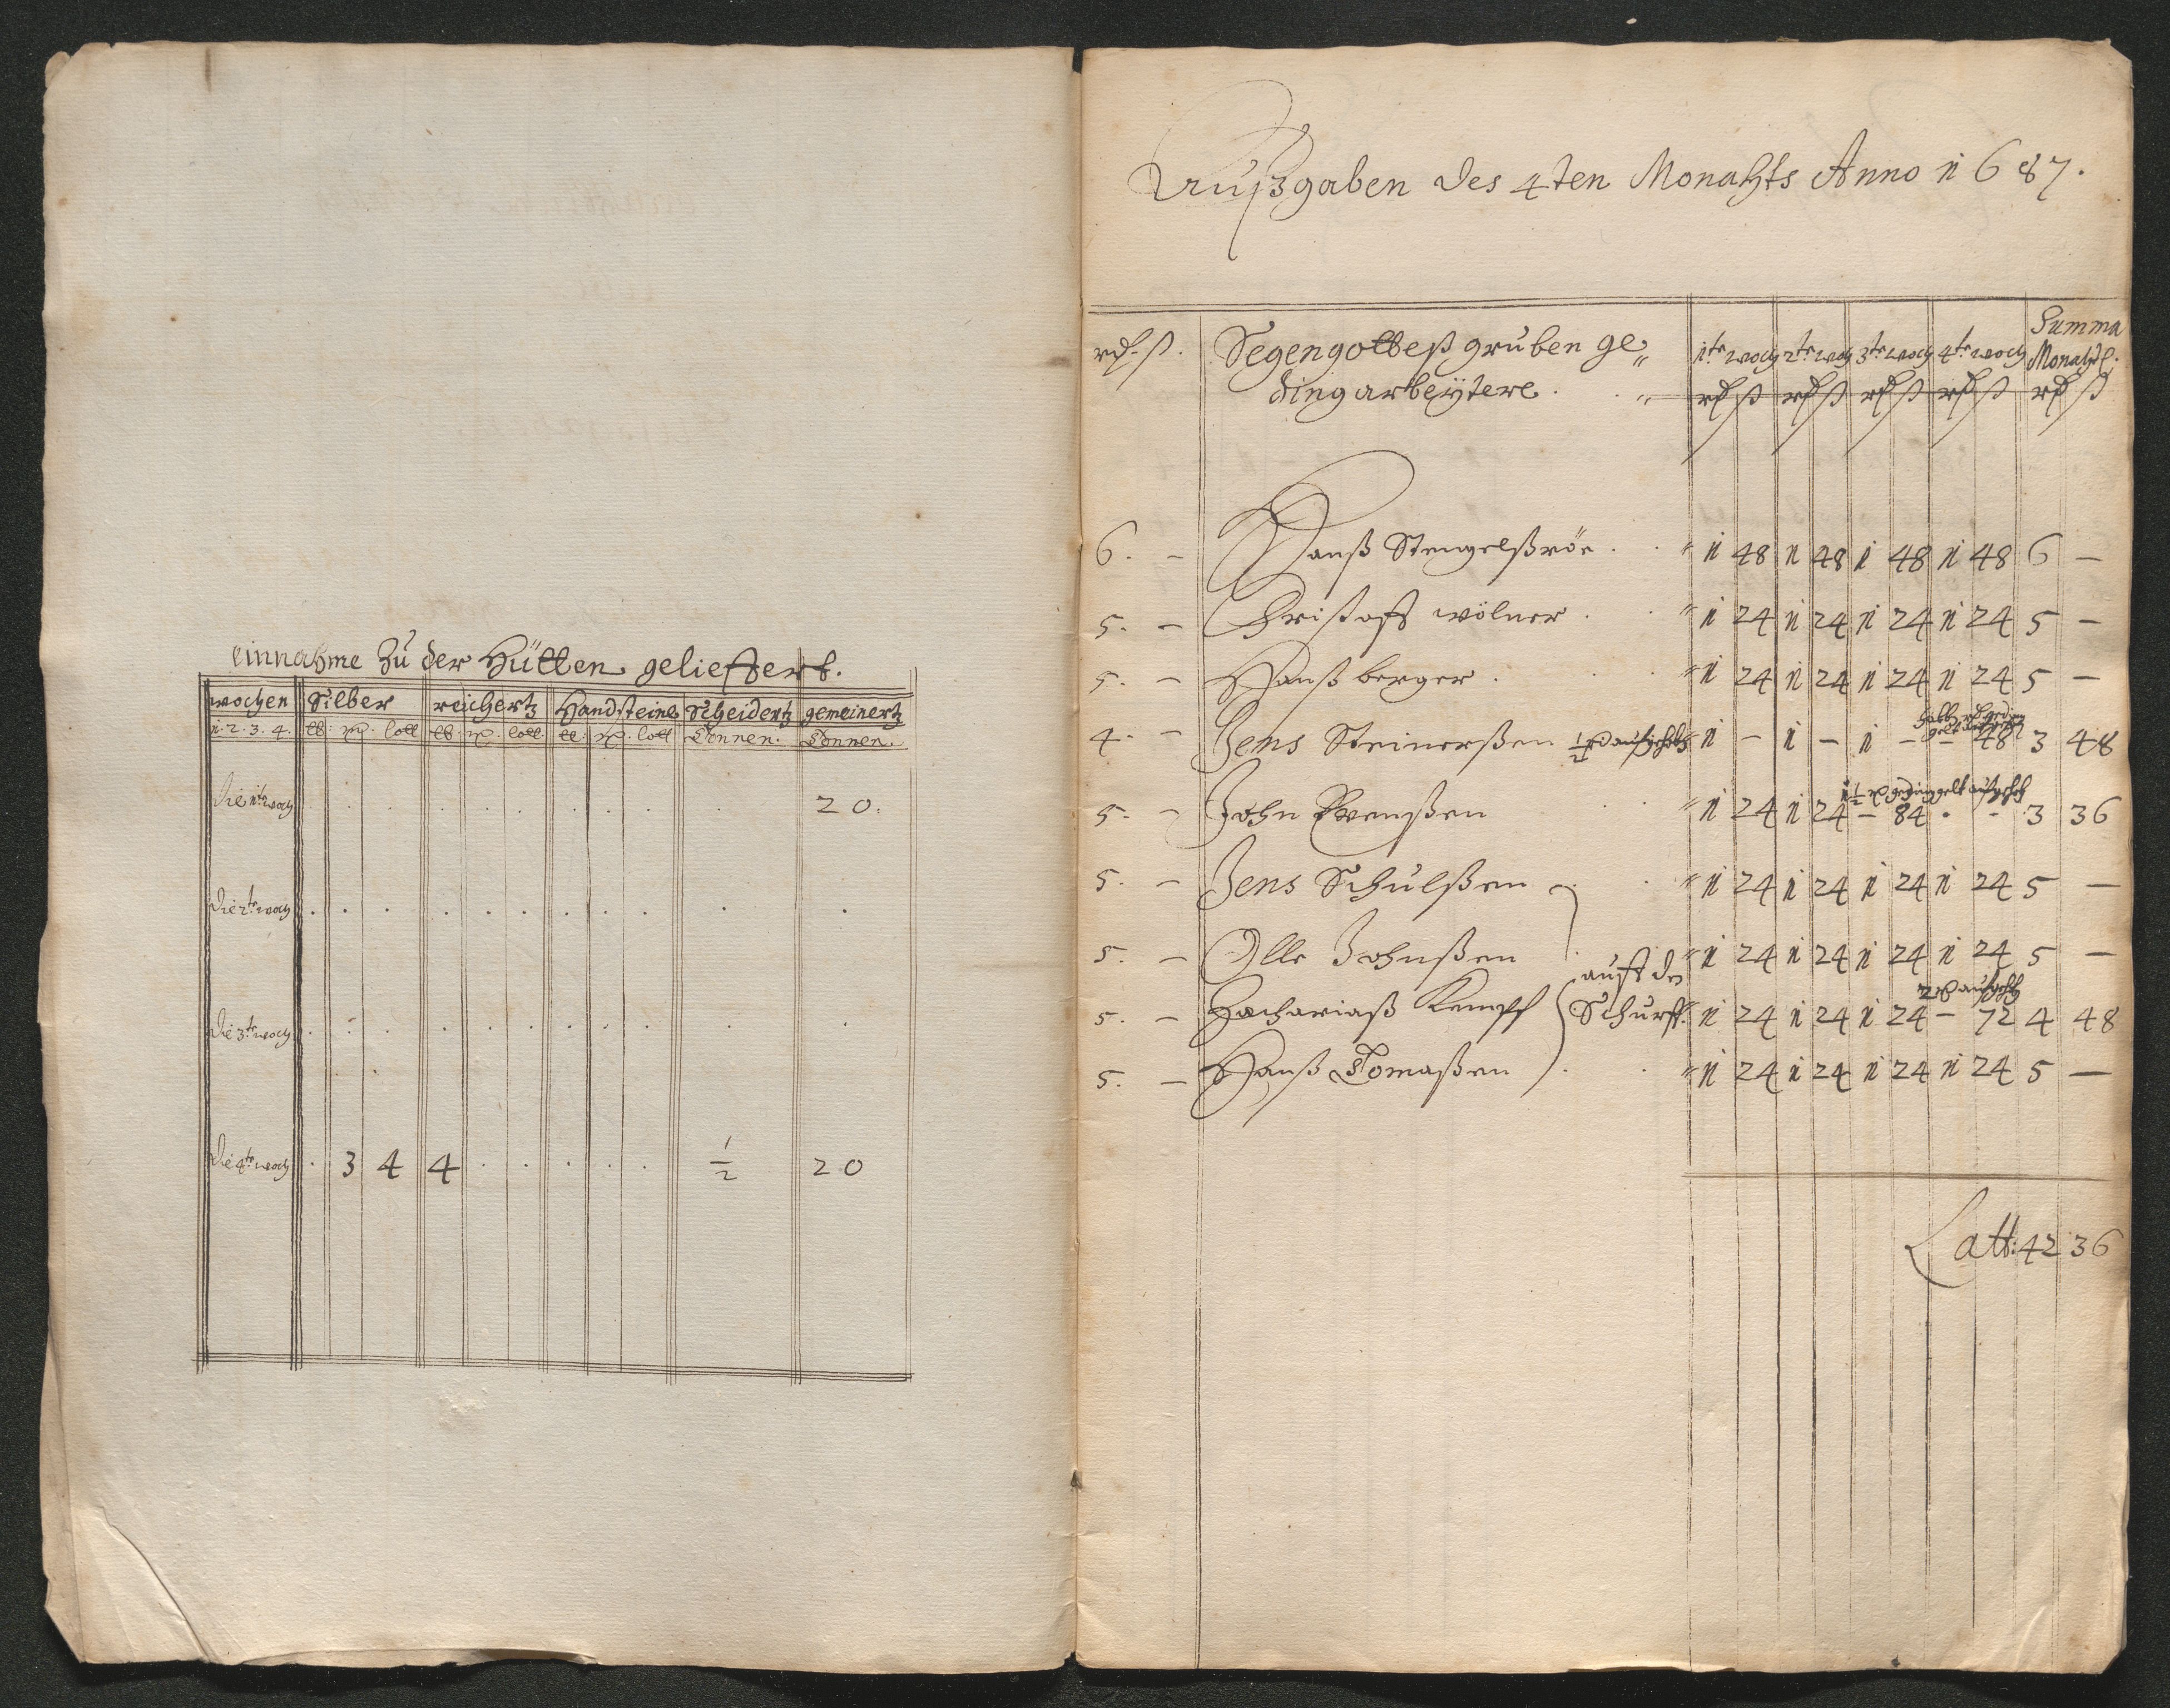 einnahme Zu der Hütten gelieffert.
wochen Silber reichertz Handsteine Scheidertz gemeinertz
1. 2. 3. 4. lb. loll lb. loll lb. loll Tonnen. Tonnen.
Die 1te woch . . . . . . . . . . 20.
Die 2te woch . . . . . . . . . . .
Die 3te woch . . . . . . . . . . .
Die 4te woch . 3 4 4 . . . . . 1/2 20
Außgaben des 4ten Monahts Anno 1687.
rd. ß. Segengotteß gruben ge„ 1te woch 2te woch 3te woch 4te woch Summa Monahtl.
dingarbeÿtere. rd ß rd ß rd ß rd ß rd ß
6. – Hanß Stengelßröe . . 1 48 1 48 1 48 1 48 6 –
5. – Christoff wölner . . 1 24 1 24 1 24 1 24 5 –
5. – Hanß berger . . . 1 24 1 24 1 24 1 24 5 –
4. – Jens Steinerßen 1/2 rd 1 – 1 – 1 – – 48 3 48
1 1/2 rd gedinggelt
5. – John Swenßen . . 1 24 1 24 – 84 . – 3 36
5. – Jens Schulßen . . 1 24 1 24 1 24 1 24 5 –
5. – Olle Johnßen . 1 24 1 24 1 24 1 24 5 –
auff den
5. – Zachariaß Kempff Schurff. 1 24 1 24 1 24 – 72 4 48
5. – Hanß Tomaßen . . 1 24 1 24 1 24 1 24 5 –
Latt: 42 36